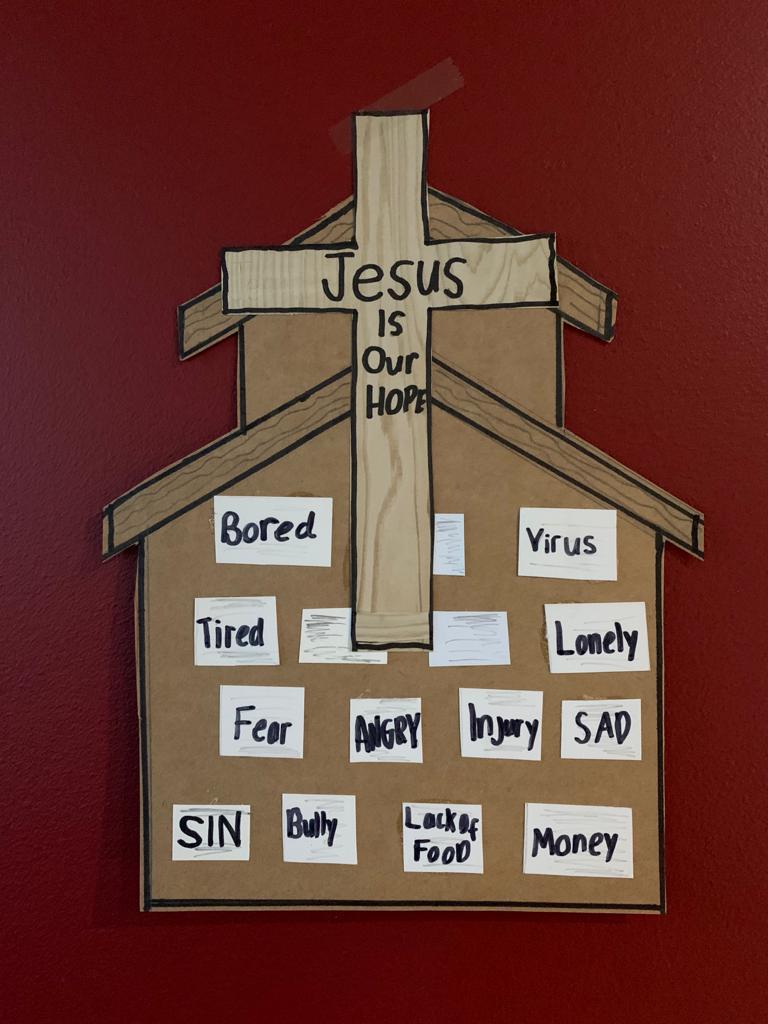 Jesus
Is
Our
HOPE
Bored
Virus
Tired
Lonely
Fear
ANGRY
Injury
SAD
SIN
Bully
Lack of
FOOD
Money